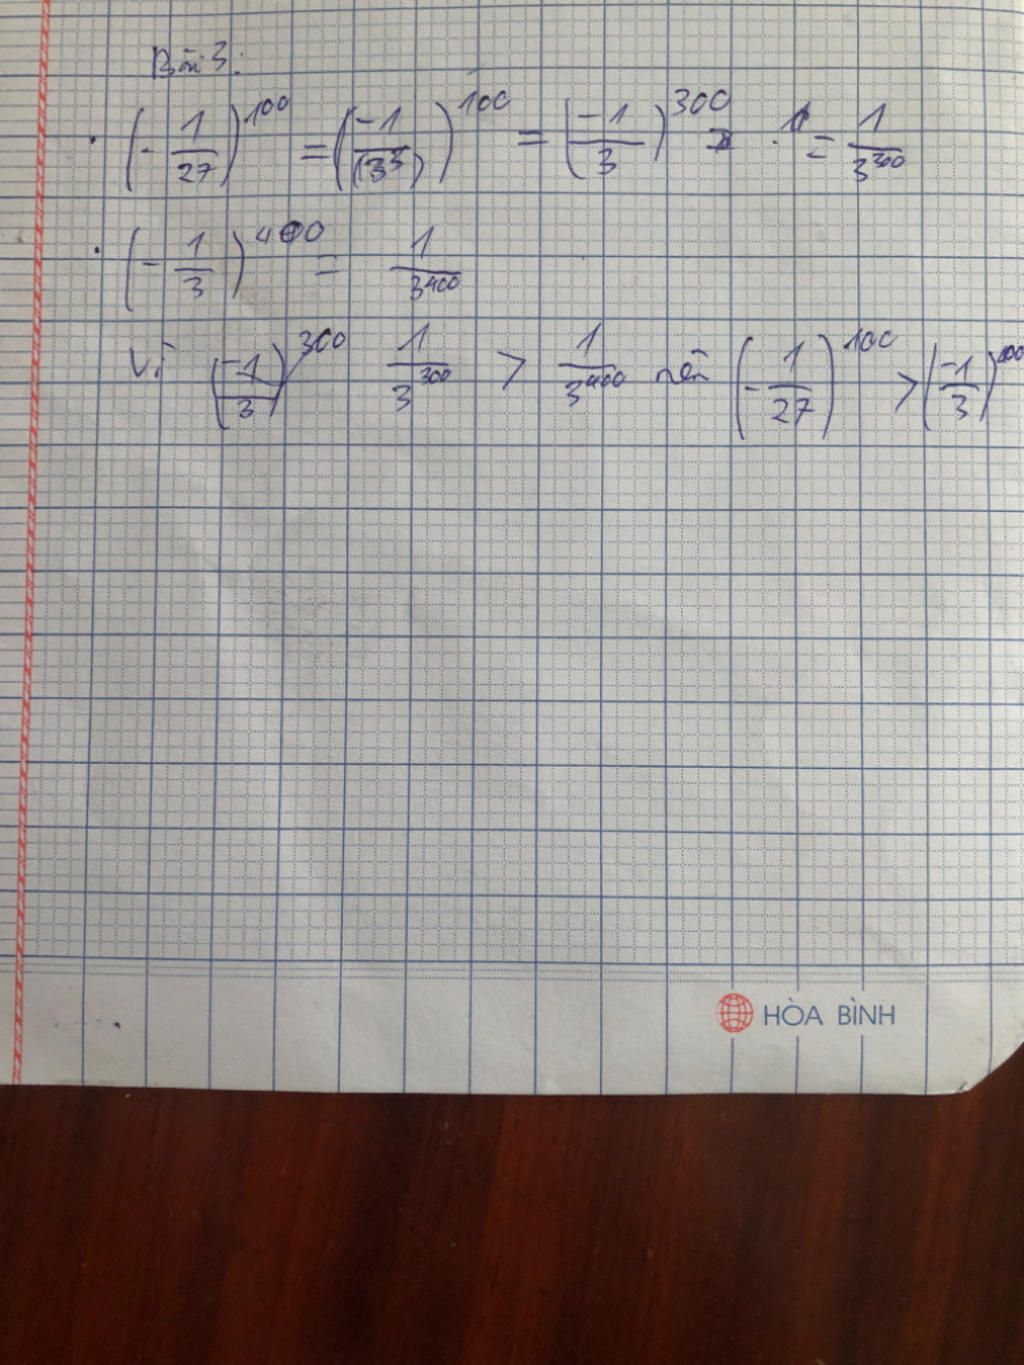 Bài 3:
. (- 1/27)^100 = (-1/(3^3))^100 = (-1/3)^300 = 1/3^300
. (- 1/3)^400 = 1/3^400
Vì 1/3^300 > 1/3^400 nên (- 1/27)^100 > (-1/3)^400
HÒA BÌNH